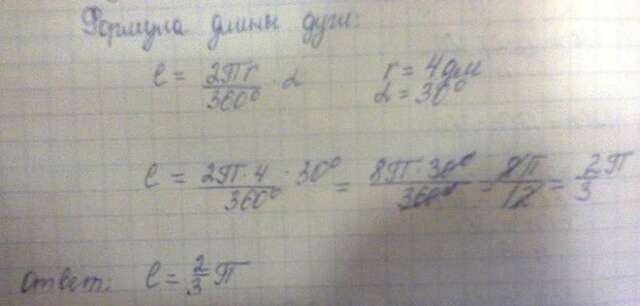 Формула длины дуги:
l = 2πr/360° · α    r = 4дм
α = 30°
l = 2π·4/360° · 30° = 8π·30°/360° = 8π/12 = 2π/3
Ответ: l = 2/3 π